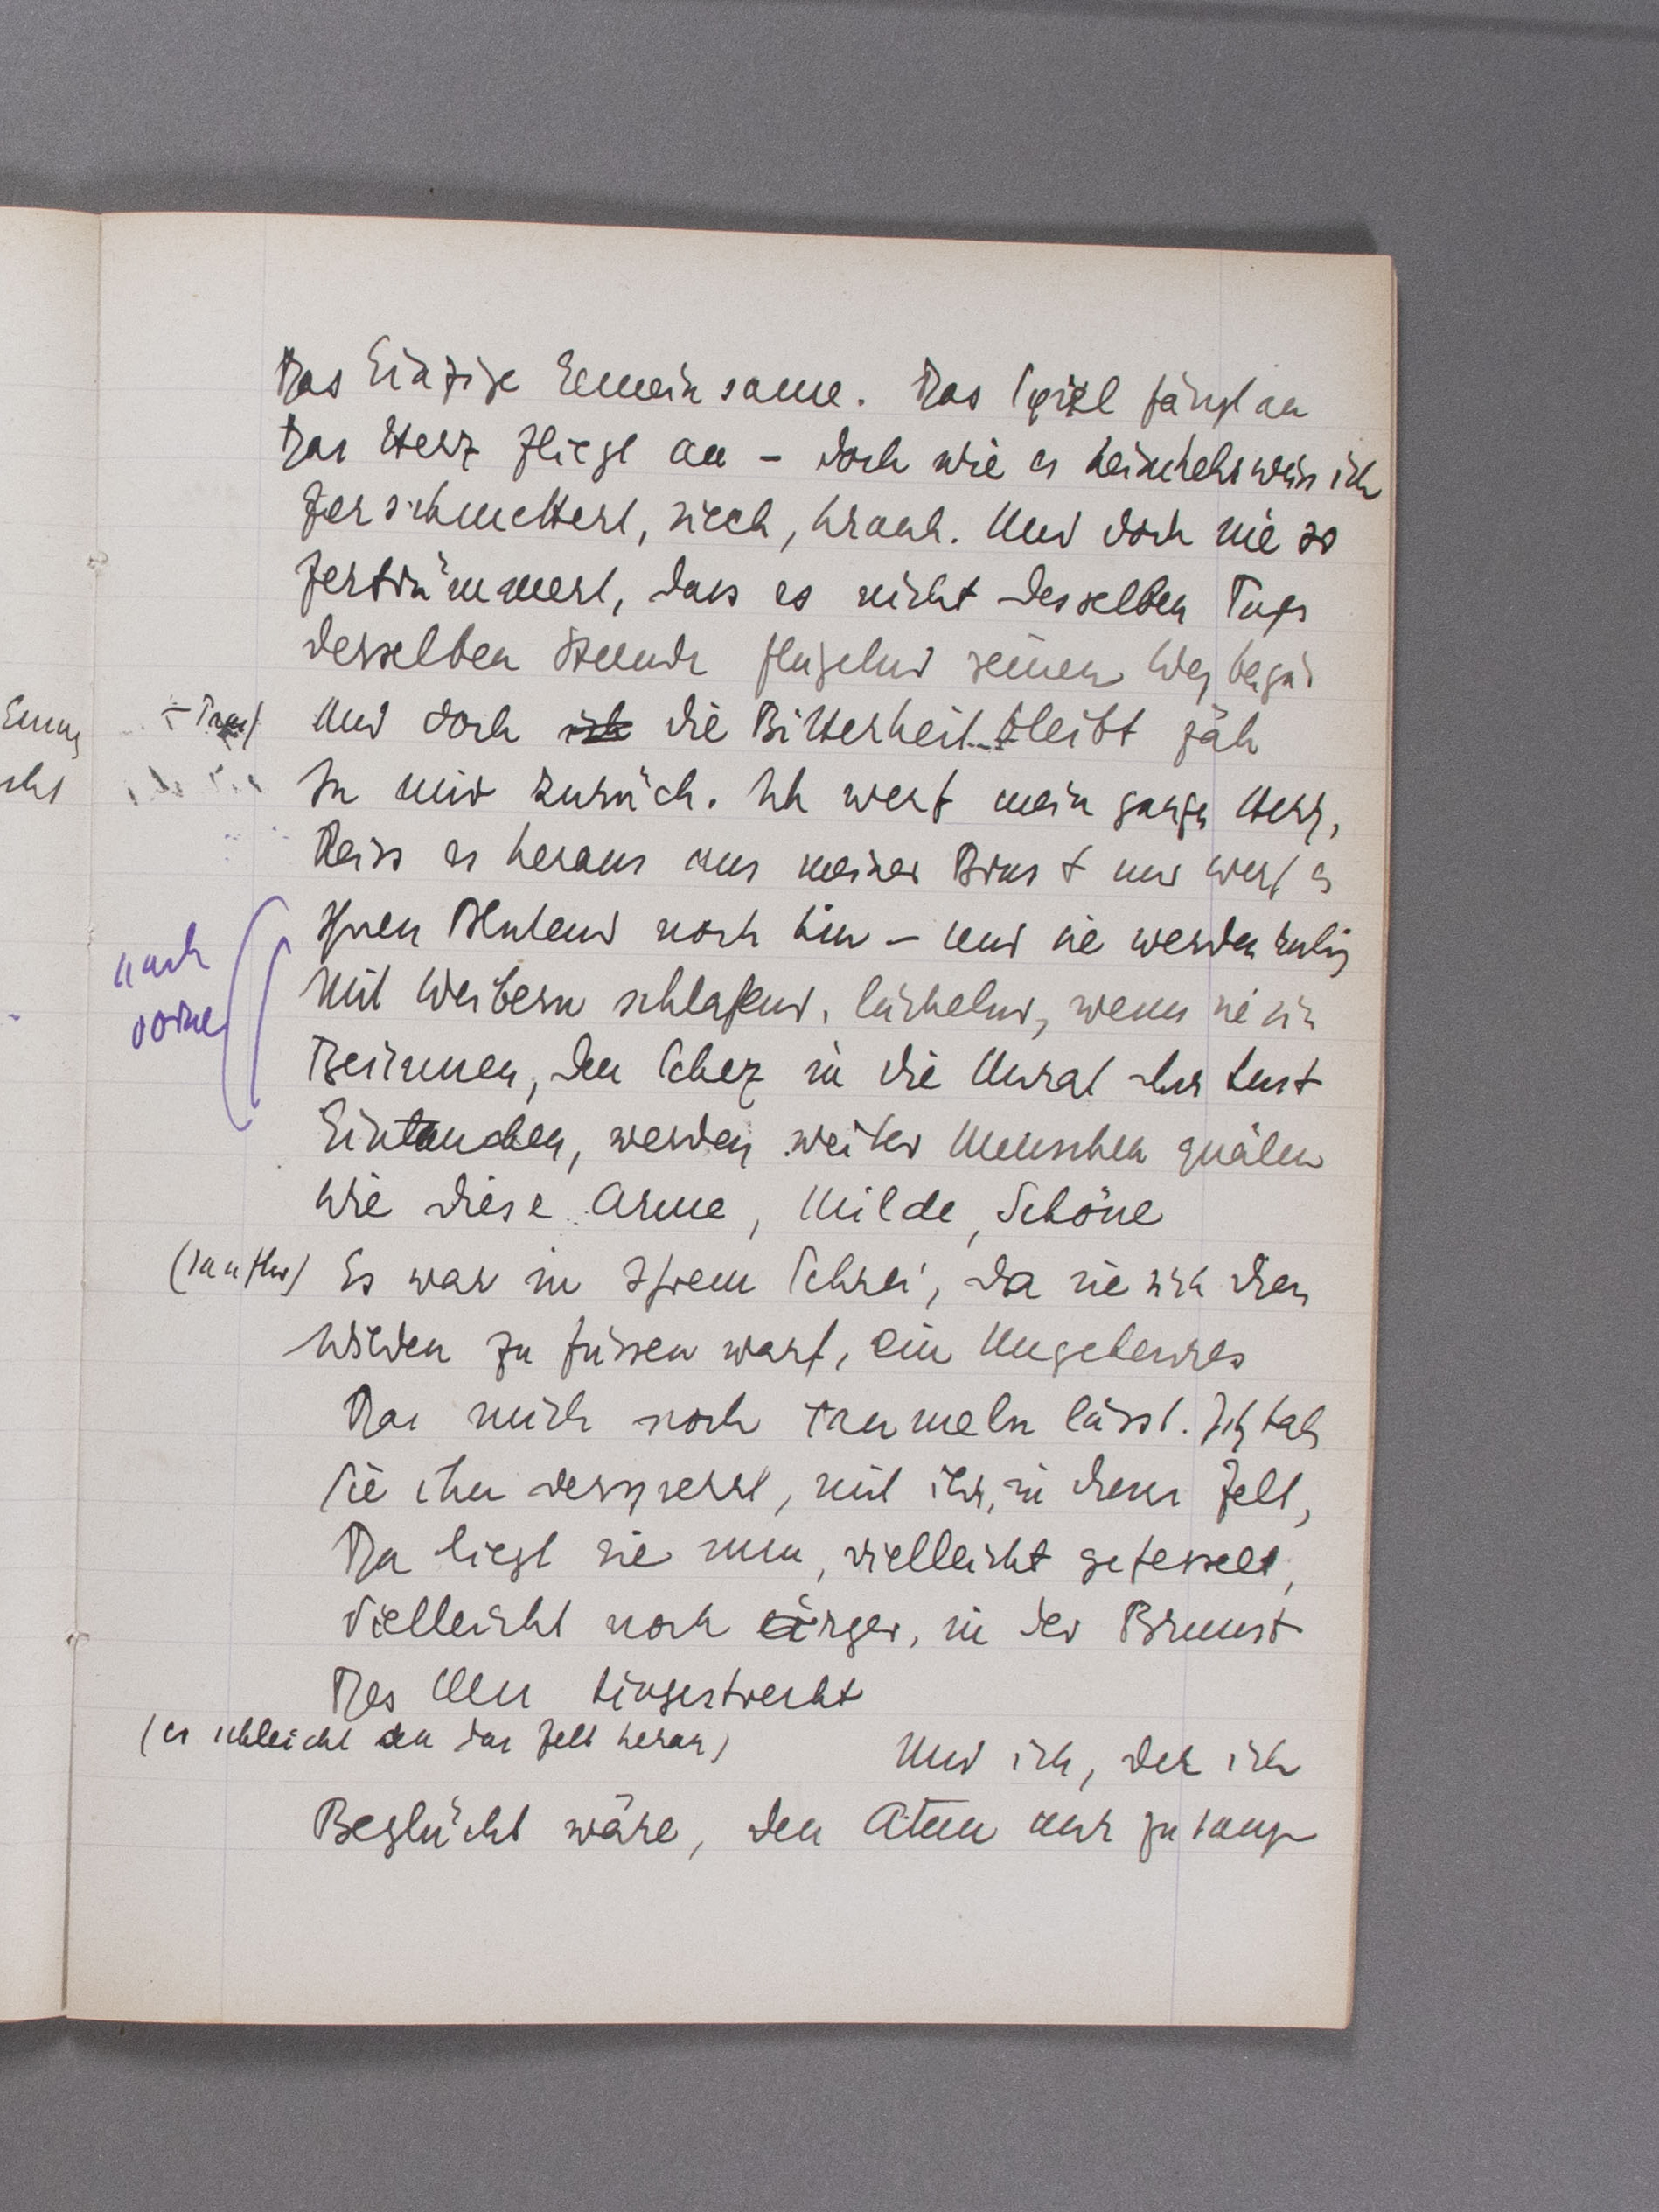 Das Einzige Gemeinsame. Das Spiel fängt an
Das Herz fliegt an – doch wie es heimkehrt weiss ich
Zerschmettert, siech, krank. Und doch nie so
Zertrümmert, dass es nicht desselben Tags
Derselben Stunde flügelnd seinen Weg
Und doch die Bitterheit bleibt jäh
In mir zurück. Ich werf mein ganzes Herz,
Reiss es heraus aus meiner Brust und werf es
Ihnen blutend noch hin – und sie werden ruhig
nach
vorne
Mit Weibern schlafend, lächelnd, wenn sie sich
Besinnen, den in die Unrat ihrer Lust
Eintauchen, werden weiter Menschen quälen
Wie diese Arme, Milde, Schöne
(sanfter) Es war in Ihrem Schrei, da sie sich dem
Wilden zu füssen warf, ein Ungeheures
Das mich noch taumeln lässt. Ich hab
Sie ihn, mit ihr, in dem Zelt,
Da liegt sie nun, vielleicht gefesselt,
Vielleicht noch ärger, in der Brunst
Des hingestreckt
(er schleicht an das Zelt heran)
Und ich, der ich
Beglückt wäre, den Atem nur zu